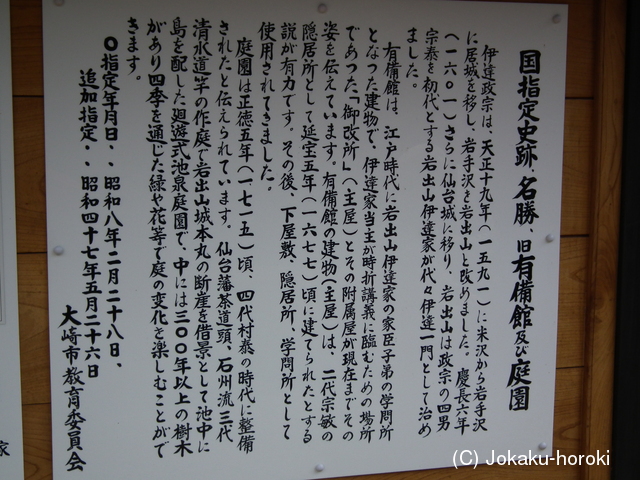 国指定史跡・名勝、旧有備館及び庭園
伊達政宗は、天正十九年(一五九一)に米沢から岩手沢
に居城を移し、岩手沢を岩出山と改めました。慶長六年
(一六〇一)さらに仙台城に移り、岩出山は政宗の四男
宗泰を初代とする岩出山伊達家が代々伊達一門として治め
ました。
有備館は、江戸時代に岩出山伊達家の家臣子弟の学問所
となった建物で、伊達家当主が時折講義に臨むための場所
であった「御改所」(主屋)とその附属屋が現在までその
姿を伝えています。有備館の建物(主屋)は、二代宗敏の
隠居所として延宝五年(一六七七)頃に建てられたとする
説が有力です。その後、下屋敷、隠居所、学問所として
使用されてきました。
庭園は正徳五年(一七一五)頃、四代村泰の時代に整備
されたと伝えられています。仙台藩茶道頭、石州流三代
清水道竿の作庭で岩出山城本丸の断崖を借景として池中に
島を配した廻遊式池泉庭園で、中には三〇〇年以上の樹木
があり四季を通じた緑や花等で庭の変化を楽しむことがで
きます。
〇指定年月日・・昭和八年二月二十八日、
追加指定・・昭和四十七年五月二十六日
大崎市教育委員会
家
(C) Jokaku-horoki